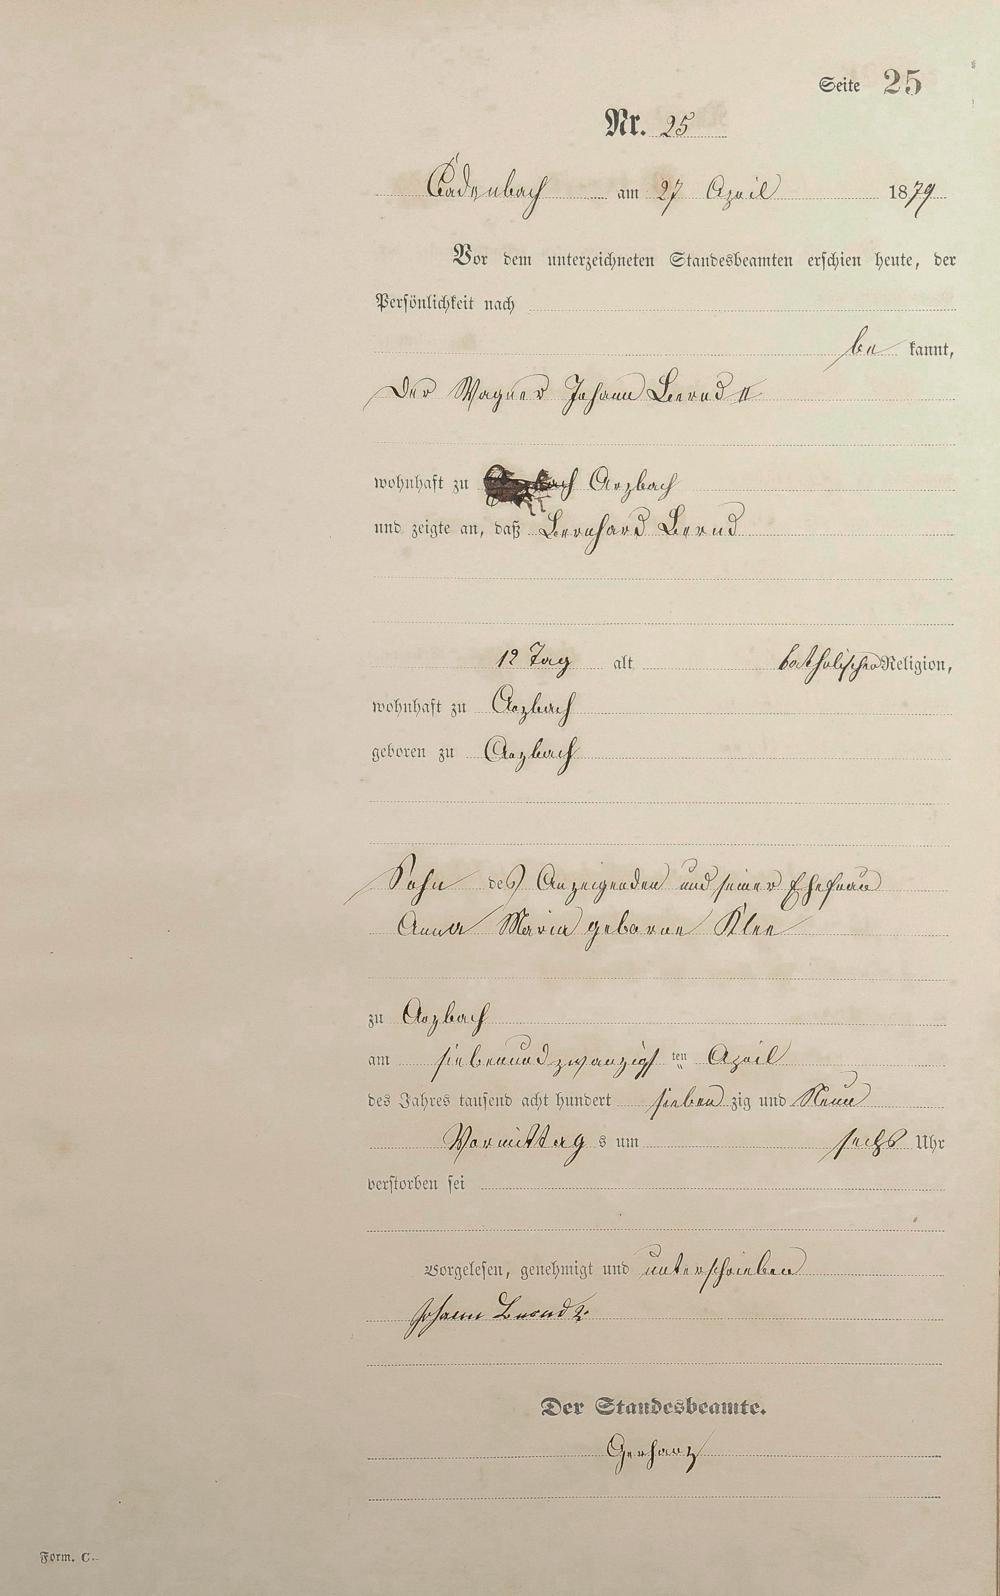 Seite 25
Nr. 25
Cadenbach am 27 April 1879
Vor dem unterzeichneten Standesbeamten erschien heute, der
Persönlichkeit nach
be kannt,
Der Wagner Johann Bernd II
wohnhaft zu Arzbach
und zeigte an, daß Bernhard Bernd
12 Tag alt katholischer Religion,
wohnhaft zu Arzbach
geboren zu Arzbach
Sohn des Anzeigenden und seiner Ehefrau
Anna Maria geborne Klee
zu Arzbach
am siebenundzwanzigsten April
des Jahres tausend acht hundert sieben zig und Neun
Vormittag s um sechs Uhr
verstorben sei
Vorgelesen, genehmigt und unterschrieben
Johann Bernd 2:
Der Standesbeamte.
Gerharz
Form. C.